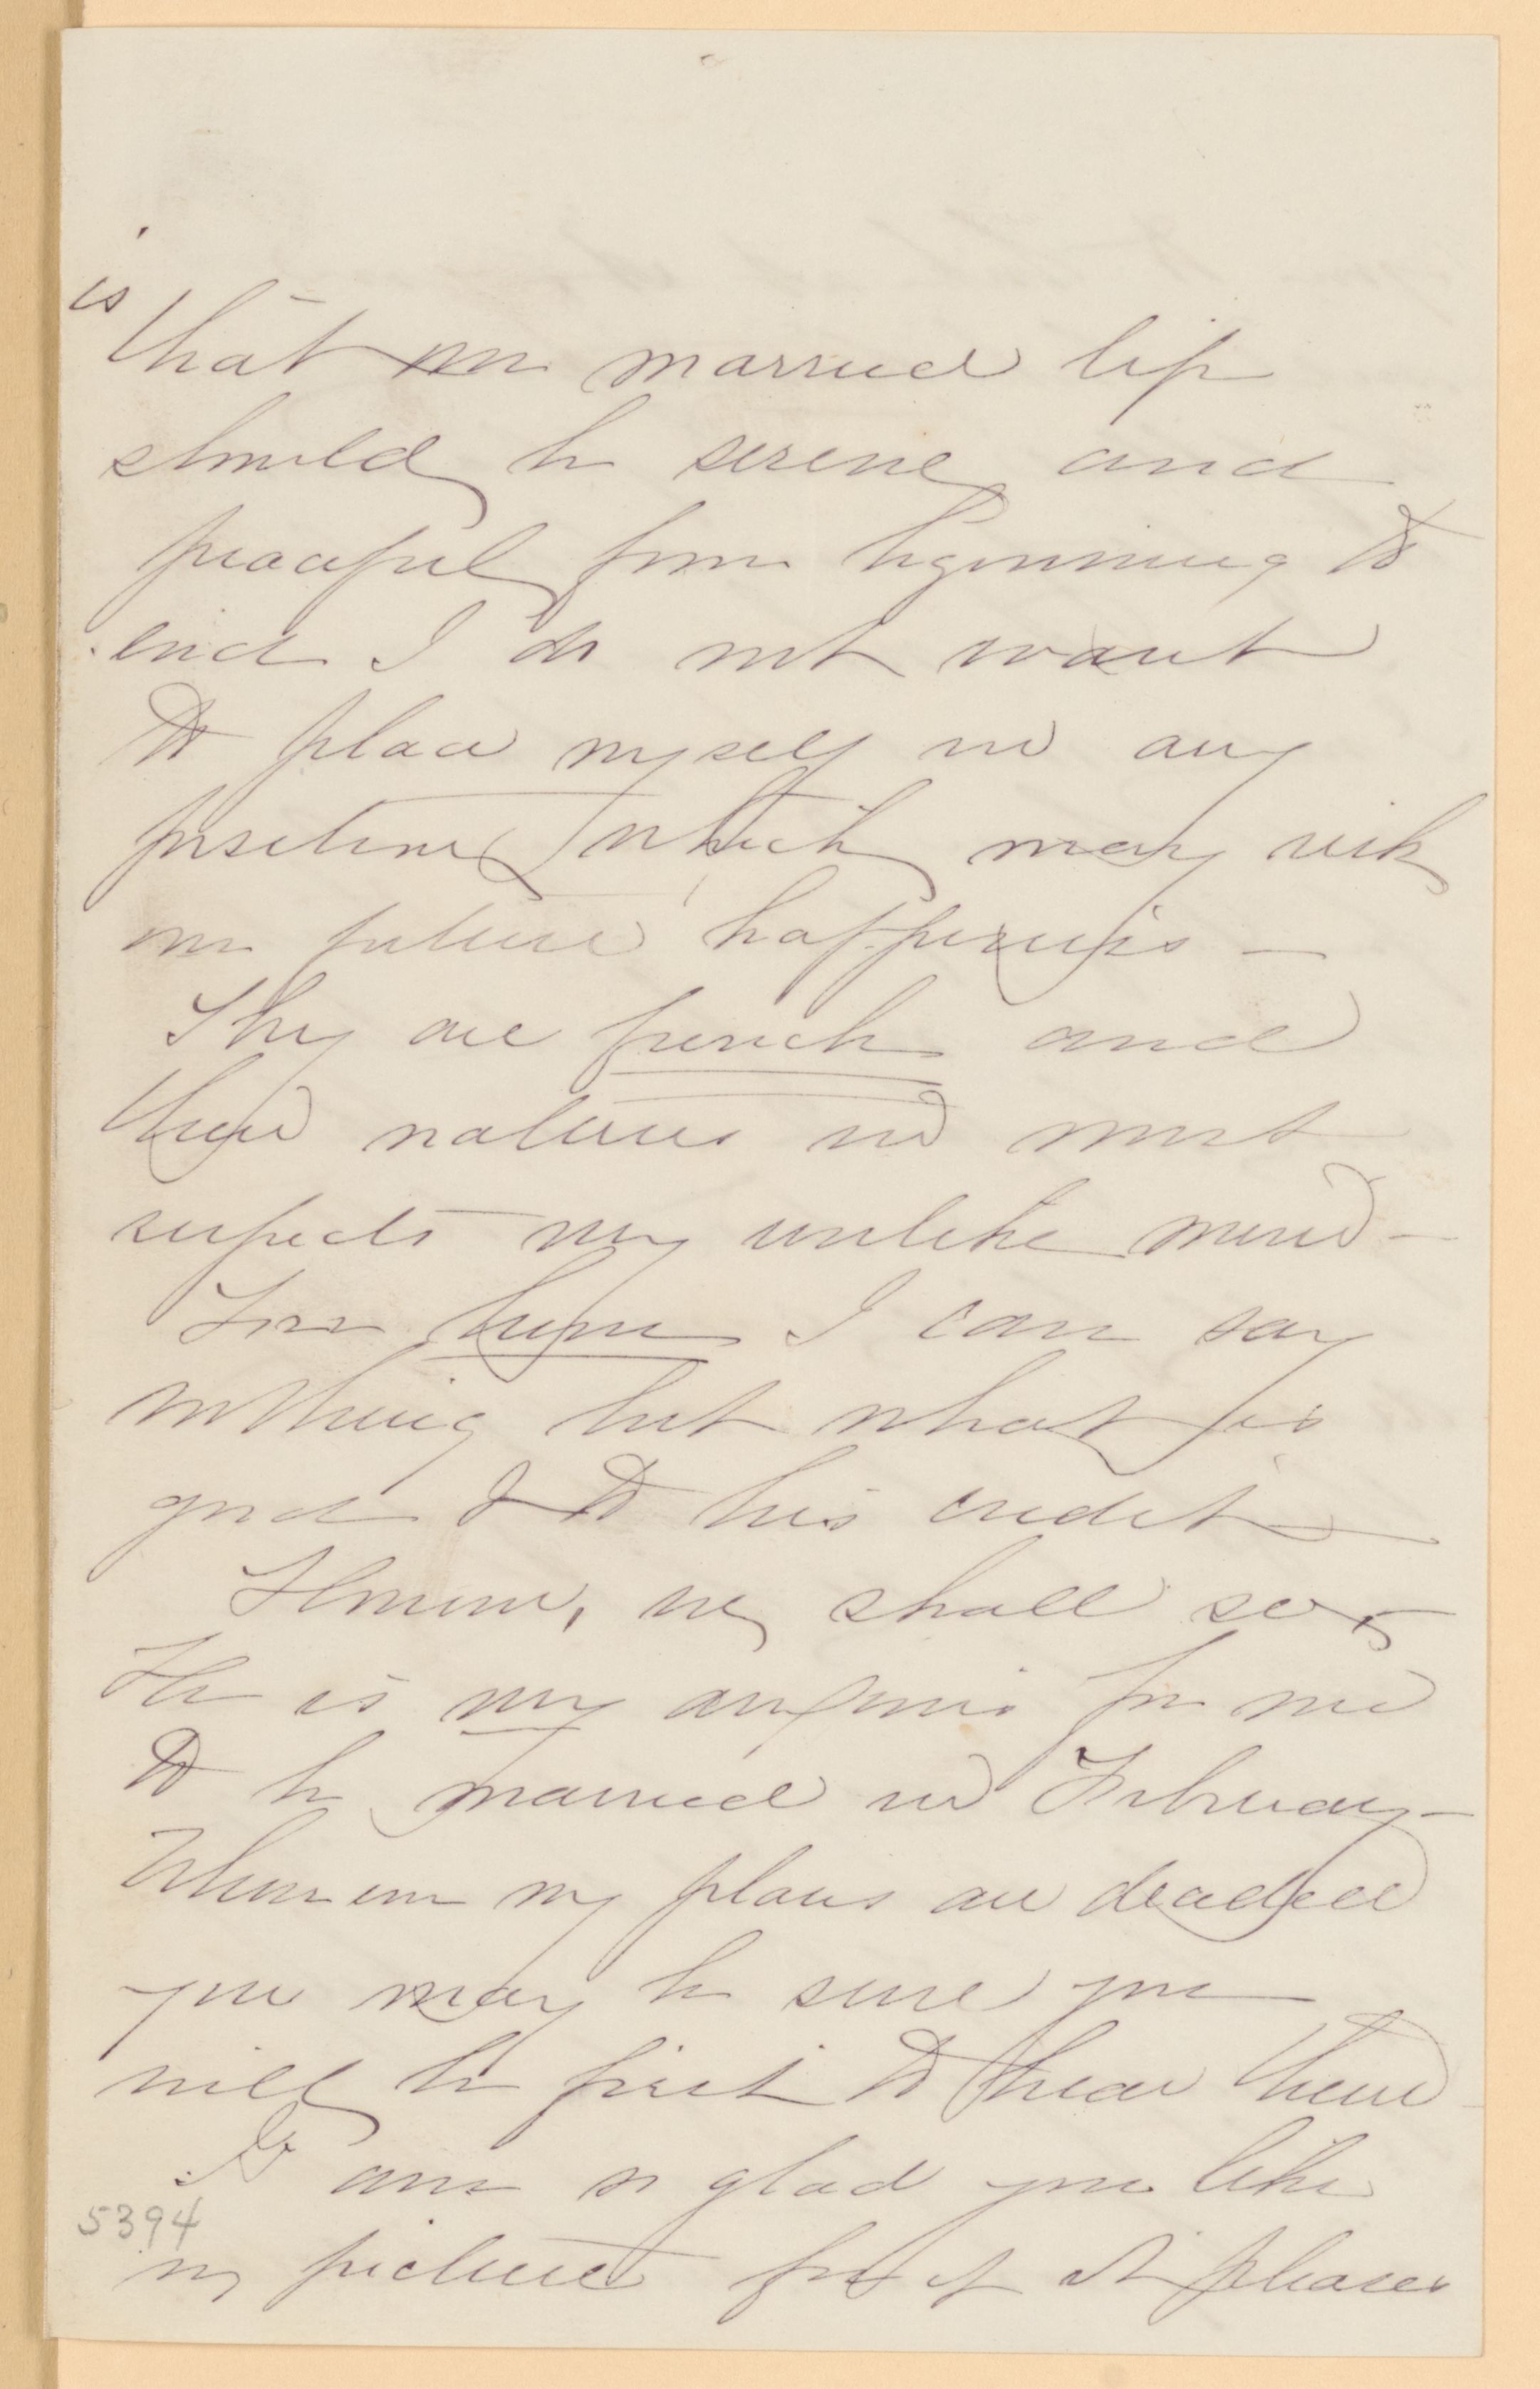 is
that our married life
should be serene and
peaceful from beginning to
end I do not want
to place myself in any
position which may risk
our future happiness —
They are french and
their natures in most
respects very unlike mine —
From him I can say
nothing but what is
good & to his credit —
However, we shall see —
He is very anxious for me
to be married in February —
Whenever my plans are decided
you may be sure you
will be first to hear them
I am so glad you like
5394
my picture for if it pleases